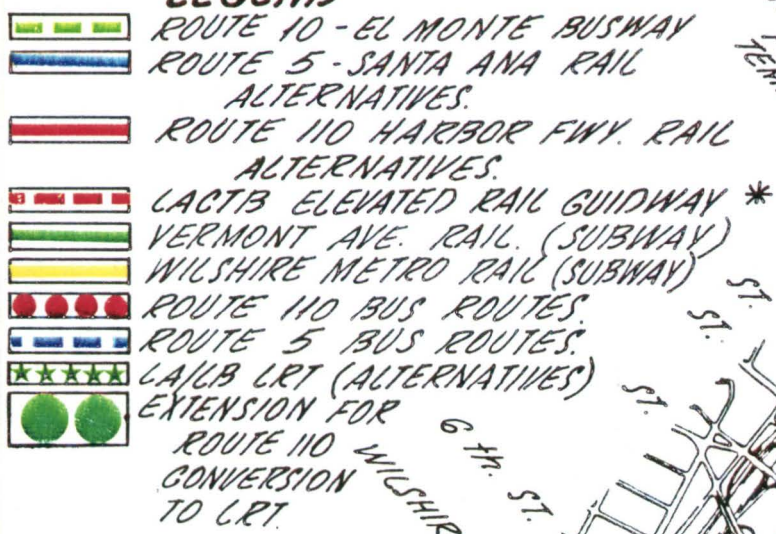 LEGEND
ROUTE 10 - EL MONTE BUSWAY
ROUTE 5 - SANTA ANA RAIL
ALTERNATIVES.
ROUTE 110 HARBOR FWY. RAIL
ALTERNATIVES.
LACTB ELEVATED RAIL GUIDWAY *
VERMONT AVE. RAIL. (SUBWAY)
WILSHIRE METRO RAIL (SUBWAY)
ROUTE 110 BUS ROUTES.
ROUTE 5 BUS ROUTES.
LA/LB LRT (ALTERNATIVES)
EXTENSION FOR
ROUTE 110
CONVERSION
TO LRT.
ST.
ST.
ST.
6 th. ST.
WILSHIR